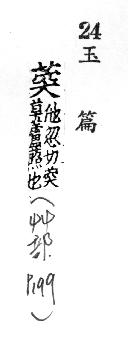 24 玉篇
葖
他忽切葖
也
(艸部 P.199)